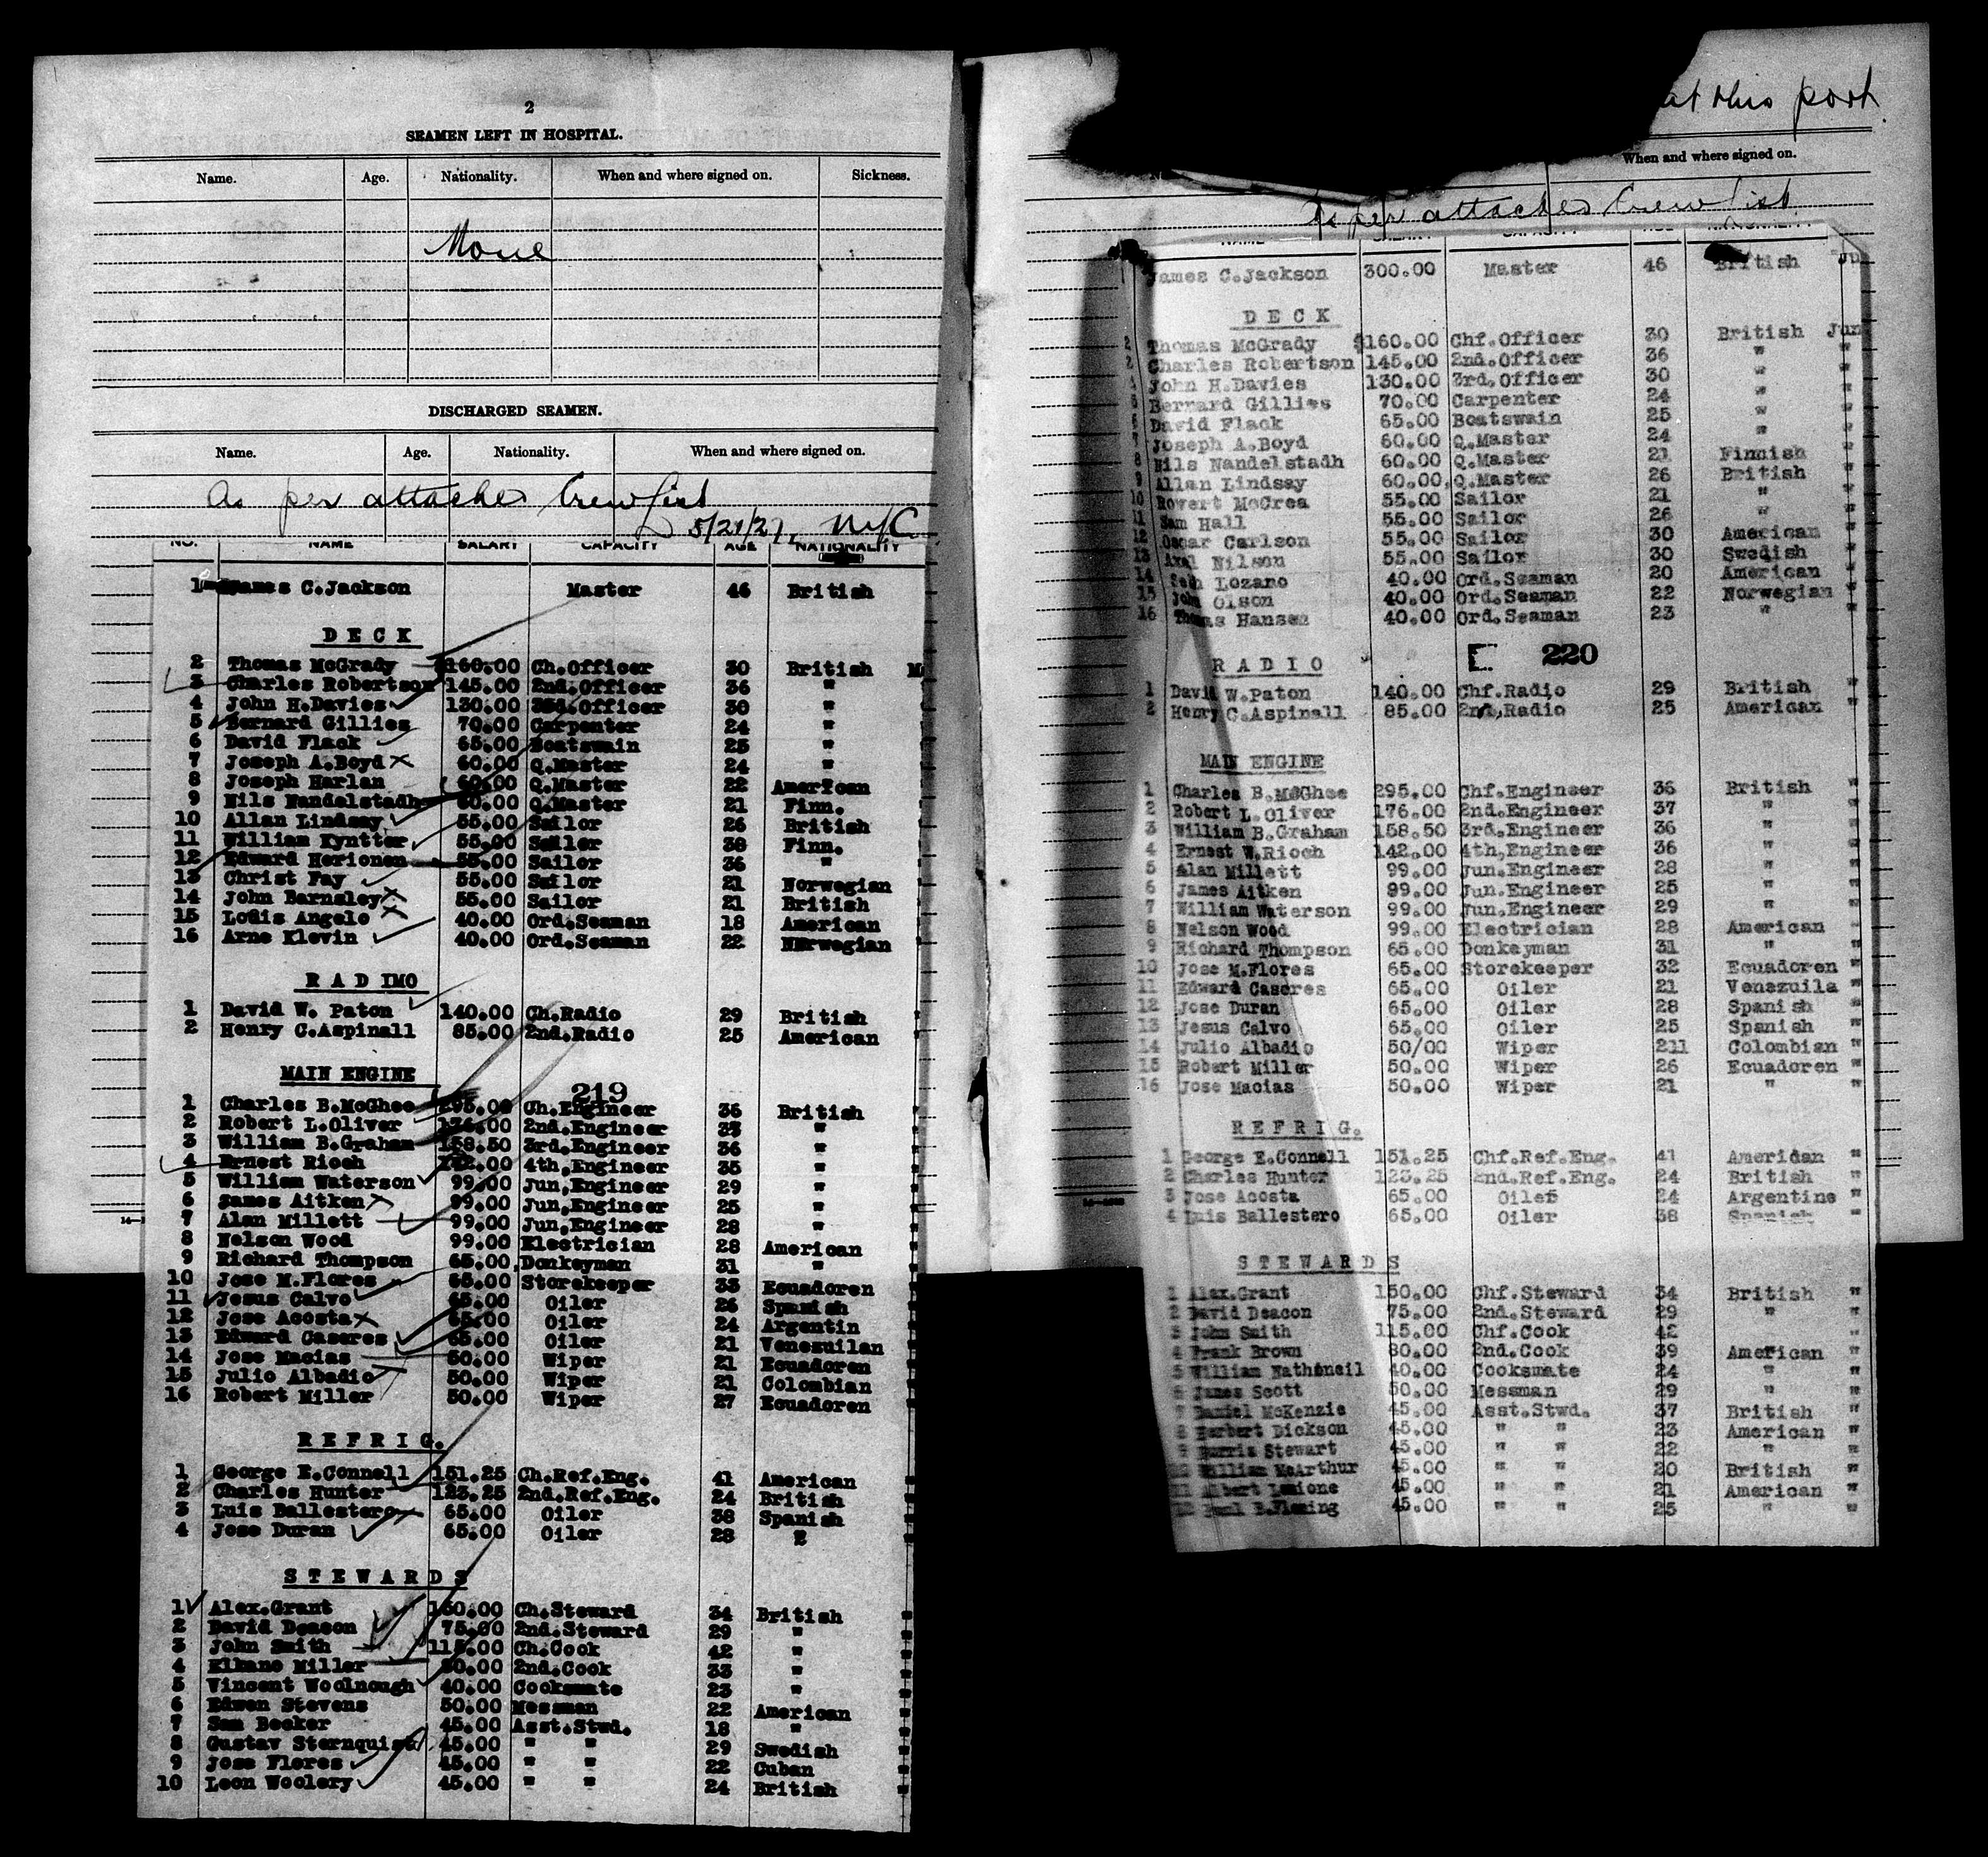 2
SEAMEN LEFT IN HOSPITAL.
Name. Age. Nationality. When and where signed on. Sickness.
None
DISCHARGED SEAMEN.
Name. Age. Nationality. When and where signed on.
As per attached Crew list
5/21/27, NYC
NO. NAME SALARY CAPACITY AGE NATIONALITY
1 James C.Jackson Master 46 British
DECK
2 Thomas McGrady $160.00 Ch.Officer 30 British M
3 Charles Robertson 145.00 2nd.Officer 36 "
4 John H.Davies 130.00 3rd.Officer 30 "
5 Bernard Gillies 70.00 Carpenter 24 "
6 David Flack 65.00 Boatswain 25 "
7 Joseph A.Boyd 60.00 Q.Master 24 "
8 Joseph Harlan 60.00 Q.Master 22 American
9 Nils Nandelstadh 60.00 Q.Master 21 Finn.
10 Allan Lindsay 55.00 Sailor 26 British
11 William Kyntter 55.00 Sailor 38 Finn.
12 Edward Herionen 55.00 Sailor 36 "
13 Christ Fay 55.00 Sailor 21 Norwegian
14 John Barnsley 55.00 Sailor 21 British
15 Louis Angelo 40.00 Ord.Seaman 18 American
16 Arne Klevin 40.00 Ord.Seaman 22 Norwegian
RADIMO
1 David W. Paton 140.00 Ch.Radio 29 British "
2 Henry C.Aspinall 85.00 2nd.Radio 25 American "
MAIN ENGINE
219
1 Charles B.McGhee 295.00 Ch.Engineer 36 British "
2 Robert L.Oliver 176.00 2nd.Engineer 37 " "
3 William B.Graham 158.50 3rd.Engineer 36 " "
4 Ernest Rioch 142.00 4th.Engineer 35 " "
5 William Waterson 99.00 Jun.Engineer 29 " "
6 James Aitken 99.00 Jun.Engineer 25 " "
7 Alan Millett 99.00 Jun.Engineer 28 " "
8 Nelson Wood 99.00 Electrician 28 American "
9 Richard Thompson 65.00 Donkeyman 31 " "
10 Jose M.Flores 65.00 Storekeeper 33 Ecuadoren "
11 Jesus Calvo 65.00 Oiler 26 Spanish "
12 Jose Acosta 65.00 Oiler 24 Argentin "
13 Edward Caseres 65.00 Oiler 21 Venezuilan "
14 Jose Macias 50.00 Wiper 21 Ecuadoren "
15 Julio Albadio 50.00 Wiper 21 Colombian "
16 Robert Miller 50.00 Wiper 27 Ecuadoren "
REFRIG.
1 George E.Connell 151.25 Ch.Ref.Eng. 41 American "
2 Charles Hunter 123.25 2nd.Ref.Eng. 24 British "
3 Luis Ballestero 65.00 Oiler 38 Spanish "
4 Jose Duran 65.00 Oiler 28 " "
STEWARDS
1 Alex.Grant 150.00 Ch.Steward 34 British "
2 David Deacon 75.00 2nd.Steward 29 " "
3 John Smith 115.00 Ch.Cook 42 " "
4 Elkano Miller 80.00 2nd.Cook 33 " "
5 Vincent Woolnough 40.00 Cooksmate 23 " "
6 Edwen Stevens 50.00 Messman 22 American "
7 Sam Becker 45.00 Asst.Stwd. 18 " "
8 Gustav Sternquist 45.00 " " 29 Swedish "
9 Jose Flores 45.00 " " 22 Cuban "
10 Leon Woolery 45.00 " " 24 British "
at this port
When and where signed on.
As per attached Crew list
NAME SALARY CAPACITY AGE NATIONALITY
1 James C.Jackson 300.00 Master 46 British Ju
DECK
2 Thomas McGrady $160.00 Chf.Officer 30 British Jun
Charles Robertson 145.00 2nd.Officer 36 " "
4 John H.Davies 130.00 3rd.Officer 30 " "
5 Bernard Gillies 70.00 Carpenter 24 " "
6 David Flack 65.00 Boatswain 25 " "
7 Joseph A.Boyd 60.00 Q.Master 24 " "
8 Nils Nandelstadh 60.00 Q.Master 21 Finnish "
9 Allan Lindsay 60.00 Q.Master 26 British "
10 Rovert McCrea 55.00 Sailor 21 " "
11 Sam Hall 55.00 Sailor 26 " "
12 Oscar Carlson 55.00 Sailor 30 American "
13 Axel Nilson 55.00 Sailor 30 Swedish "
14 Lozano 40.00 Ord.Seaman 20 American "
15 John Olson 40.00 Ord.Seaman 22 Norwegian "
16 Thomas Hansen 40.00 Ord.Seaman 23 " "
E 220
RADIO
1 David W.Paton 140.00 Chf.Radio 29 British "
2 Henry C.Aspinall 85.00 2nd.Radio 25 American "
MAIN ENGINE
1 Charles B.McGhee 295.00 Chf.Engineer 36 British "
2 Robert L.Oliver 176.00 2nd.Engineer 37 " "
3 William B.Graham 158.50 3rd.Engineer 36 " "
4 Ernest W.Rioch 142.00 4th.Engineer 36 " "
5 Alan Millett 99.00 Jun.Engineer 28 " "
6 James Aitken 99.00 Jun.Engineer 25 " "
7 William Waterson 99.00 Jun.Engineer 29 " "
8 Nelson Wood 99.00 Electrician 28 American "
9 Richard Thompson 65.00 Donkeyman 31 " "
10 Jose M.Flores 65.00 Storekeeper 32 Ecuadoren "
11 Edward Caseres 65.00 Oiler 21 Venezuila "
12 Jose Duran 65.00 Oiler 28 Spanish "
13 Jesus Calvo 65.00 Oiler 25 Spanish "
14 Julio Albadio 50/00 Wiper 211 Colombian "
15 Robert Miller 50.00 Wiper 26 Ecuadoren "
16 Jose Macias 50.00 Wiper 21 " "
REFRIG.
1 George E.Connell 151.25 Chf.Ref.Eng. 41 American "
2 Charles Hunter 123.25 2nd.Ref.Eng. 24 British "
3 Jose Acosta 65.00 Oiler 24 Argentine "
4 Luis Ballestero 65.00 Oiler 38 Spanish "
STEWARDS
1 Alex.Grant 150.00 Chf.Steward 34 British "
2 David Deacon 75.00 2nd.Steward 29 " "
3 John Smith 115.00 Chf.Cook 42 "
4 Frank Brown 80.00 2nd.Cook 39 American "
5 William Nathaneil 40.00 Cooksmate 24 " "
6 James Scott 50.00 Messman 29 " "
7 Daniel McKenzie 45.00 Asst.Stwd. 37 British "
8 Herbert Dickson 45.00 " " 23 American "
9 Stewart 45.00 " " 22 " "
10 William McArthur 45.00 " " 20 British "
11 Albert 45.00 " " 21 American "
12 Paul B.Fleming 45.00 " " 25 " "